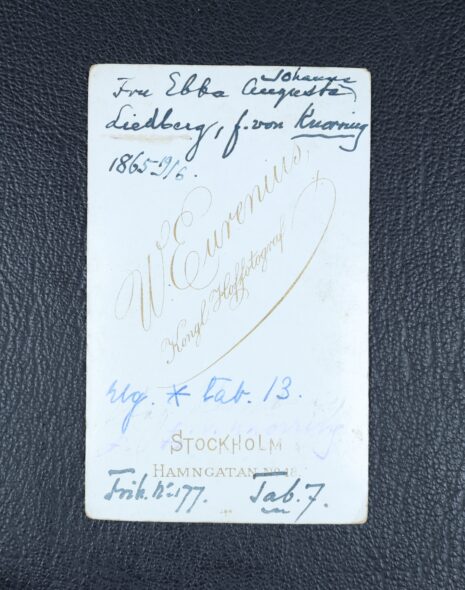 Fru Ebba Johanna Augusta
Liedberg, f. von Knorring
1865 9/6.
W. Eurenius,
Kongl. Hoffotograf
Elg. * tab. 13.
Knorring
STOCKHOLM
HAMNGATAN No 18.
Frih. No 177. Tab. 7.